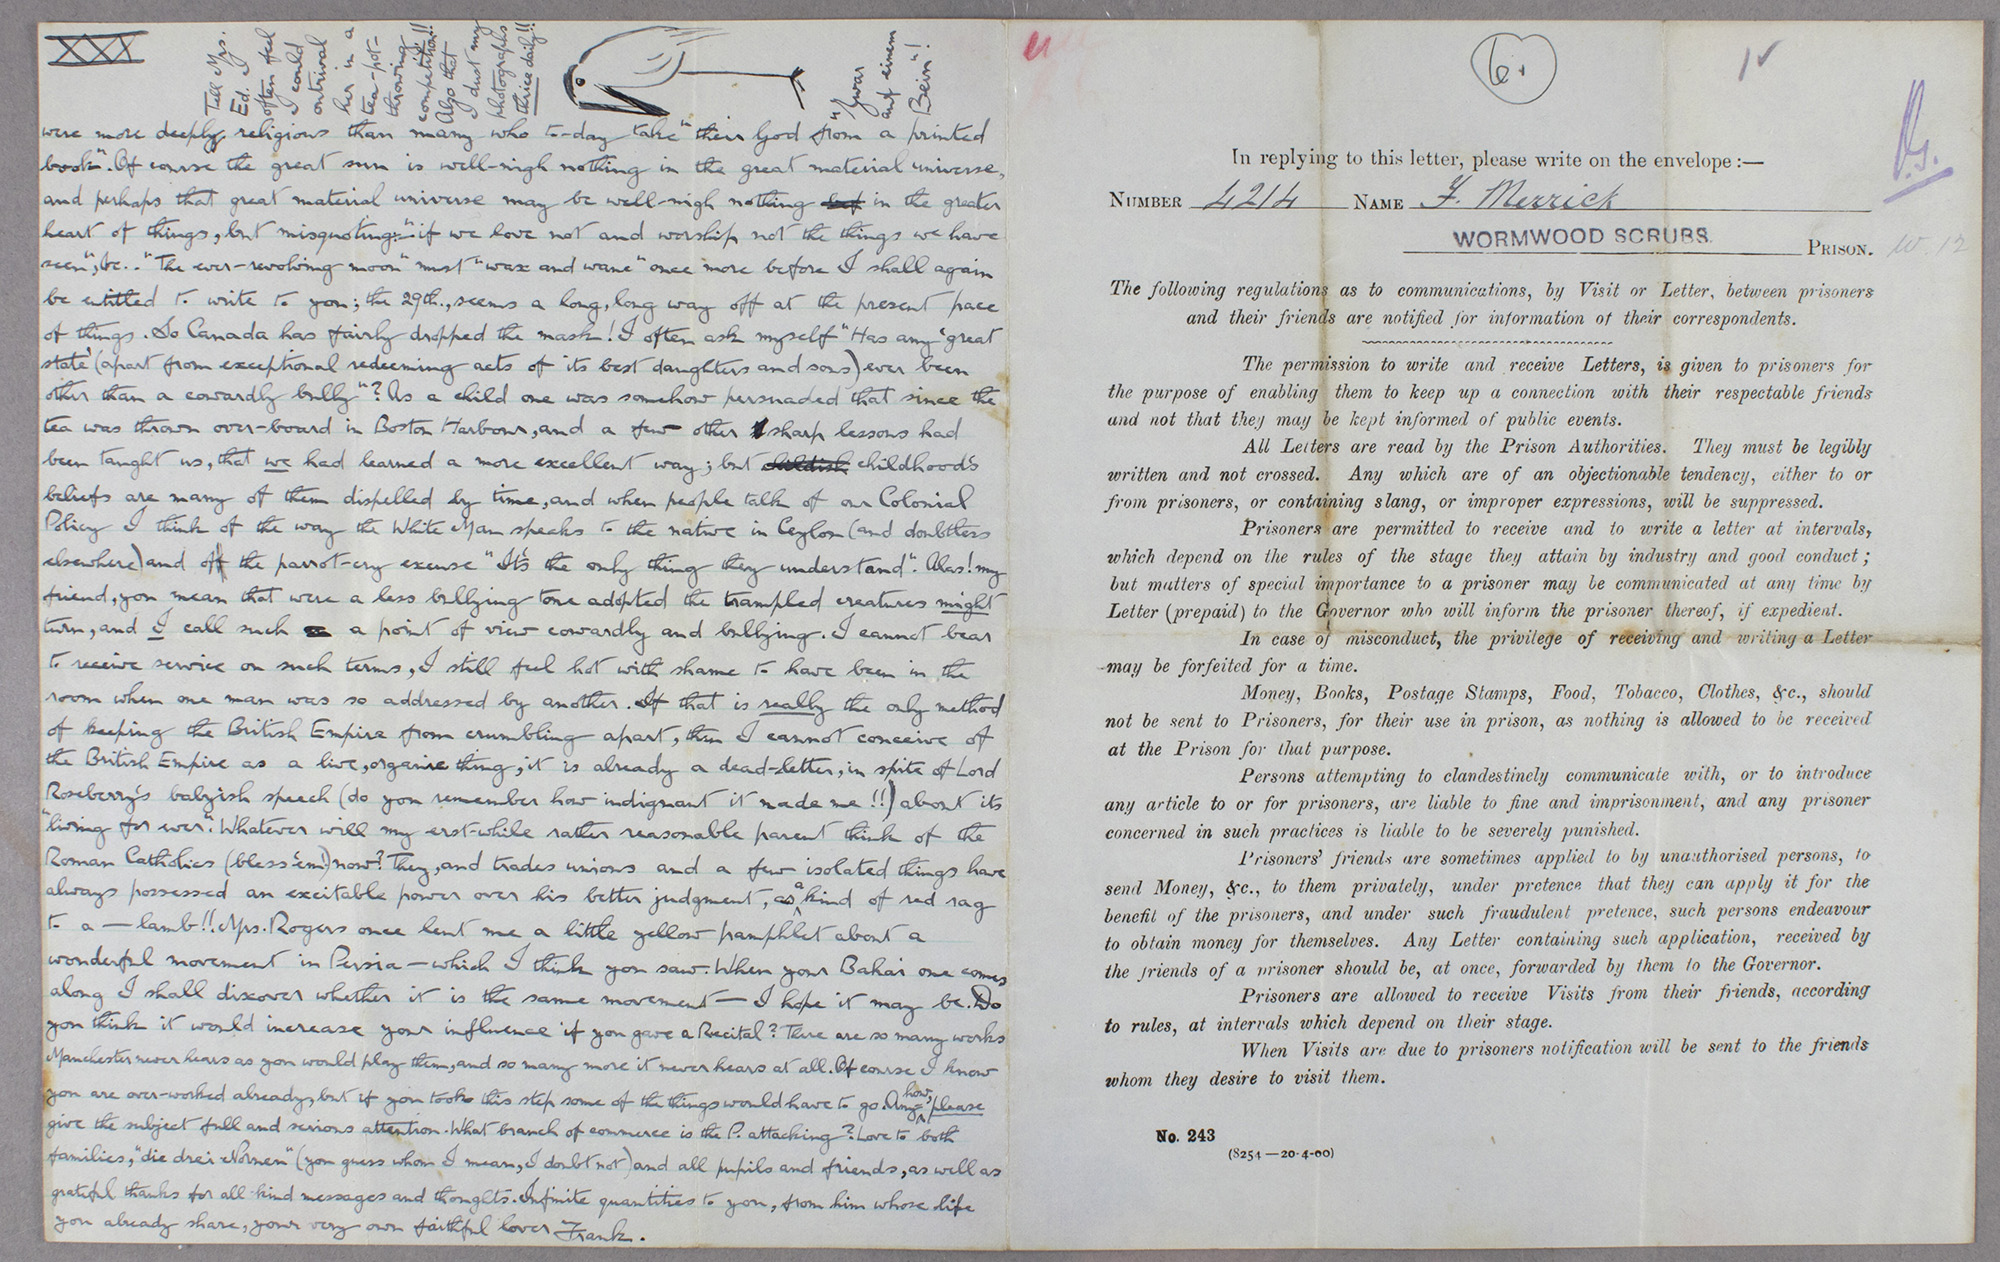 XXX
Tell Mrs.
Ed. I
often feel
I could
outrival
her in a
tea-pot-
throwing
competition!!
Also that
I dust my
photographs
thrice daily!!
"Zwar
auf einem
Bein"!
were more deeply religious than many who to-day take "their God from a printed
book". Of course the great sun is well-nigh nothing in the great material universe,
and perhaps that great material universe may be well-nigh nothing in the greater
heart of things, but misquoting:-"if we love not and worship not the things we have
seen", &c.. "The ever-revolving moon" must "wax and wane" once more before I shall again
be entitled to write to you; the 29th., seems a long, long way off at the present pace
of things. So Canada has fairly dropped the mask! I often ask myself "Has any "great
state" (apart from exceptional redeeming acts of its best daughters and sons) ever been
other than a cowardly bully"? As a child one was somehow persuaded that since the
tea was thrown over-board in Boston Harbour, and a few other sharp lessons had
been taught us, that we had learned a more excellent way; but childish childhood's
beliefs are many of them dispelled by time, and when people talk of our Colonial
Policy I think of the way the White Man speaks to the native in Ceylon (and doubtless
elsewhere) and of the parrot-cry excuse "It's the only thing they understand". Alas! my
friend, you mean that were a less bullying tone adopted the trampled creatures might
turn, and I call such a point of view cowardly and bullying. I cannot bear
to receive service on such terms, I still feel hot with shame to have been in the
room when one man was so addressed by another. If that is really the only method
of keeping the British Empire from crumbling apart, then I cannot conceive of
the British Empire as a live, organic thing, it is already a dead-letter, in spite of Lord
Roseberry's babyish speech (do you remember how indignant it made me!!) about its
"living for ever". Whatever will my erst-while rather reasonable parent think of the
Roman Catholics (bless 'em!) now? They, and trades unions and a few isolated things have
always possessed an excitable power over his better judgment, as a kind of red rag
to a — lamb!! Mrs. Rogers once lent me a little yellow pamphlet about a
wonderful movement in Persia — which I think you saw. When your Bahai one comes
along I shall discover whether it is the same movement — I hope it may be. Do
you think it would increase your influence if you gave a Recital? There are so many works
Manchester never hears as you would play them, and so many more it never hears at all. Of course I know
you are over-worked already, but if you took this step some of the things would have to go. Any-how, please
give the subject full and serious attention. What branch of commerce is the P. attacking? Love to both
families, "die drei Nornen" (you guess whom I mean, I doubt not) and all pupils and friends, as well as
grateful thanks for all kind messages and thoughts. Infinite quantities to you, from him whose life
you already share, your very own faithful lover Frank.
6.
In replying to this letter, please write on the envelope:—
NUMBER 4214 NAME F. Merrick
WORMWOOD SCRUBS. PRISON. W. 12
The following regulations as to communications, by Visit or Letter, between prisoners
and their friends are notified for information of their correspondents.
The permission to write and receive Letters, is given to prisoners for
the purpose of enabling them to keep up a connection with their respectable friends
and not that they may be kept informed of public events.
All Letters are read by the Prison Authorities. They must be legibly
written and not crossed. Any which are of an objectionable tendency, either to or
from prisoners, or containing slang, or improper expressions, will be suppressed.
Prisoners are permitted to receive and to write a letter at intervals,
which depend on the rules of the stage they attain by industry and good conduct;
but matters of special importance to a prisoner may be communicated at any time by
Letter (prepaid) to the Governor who will inform the prisoner thereof, if expedient.
In case of misconduct, the privilege of receiving and writing a Letter
may be forfeited for a time.
Money, Books, Postage Stamps, Food, Tobacco, Clothes, &c., should
not be sent to Prisoners, for their use in prison, as nothing is allowed to be received
at the Prison for that purpose.
Persons attempting to clandestinely communicate with, or to introduce
any article to or for prisoners, are liable to fine and imprisonment, and any prisoner
concerned in such practices is liable to be severely punished.
Prisoners' friends are sometimes applied to by unauthorised persons, to
send Money, &c., to them privately, under pretence that they can apply it for the
benefit of the prisoners, and under such fraudulent pretence, such persons endeavour
to obtain money for themselves. Any Letter containing such application, received by
the friends of a prisoner should be, at once, forwarded by them to the Governor.
Prisoners are allowed to receive Visits from their friends, according
to rules, at intervals which depend on their stage.
When Visits are due to prisoners notification will be sent to the friends
whom they desire to visit them.
No. 243
(8254—20-4-00)